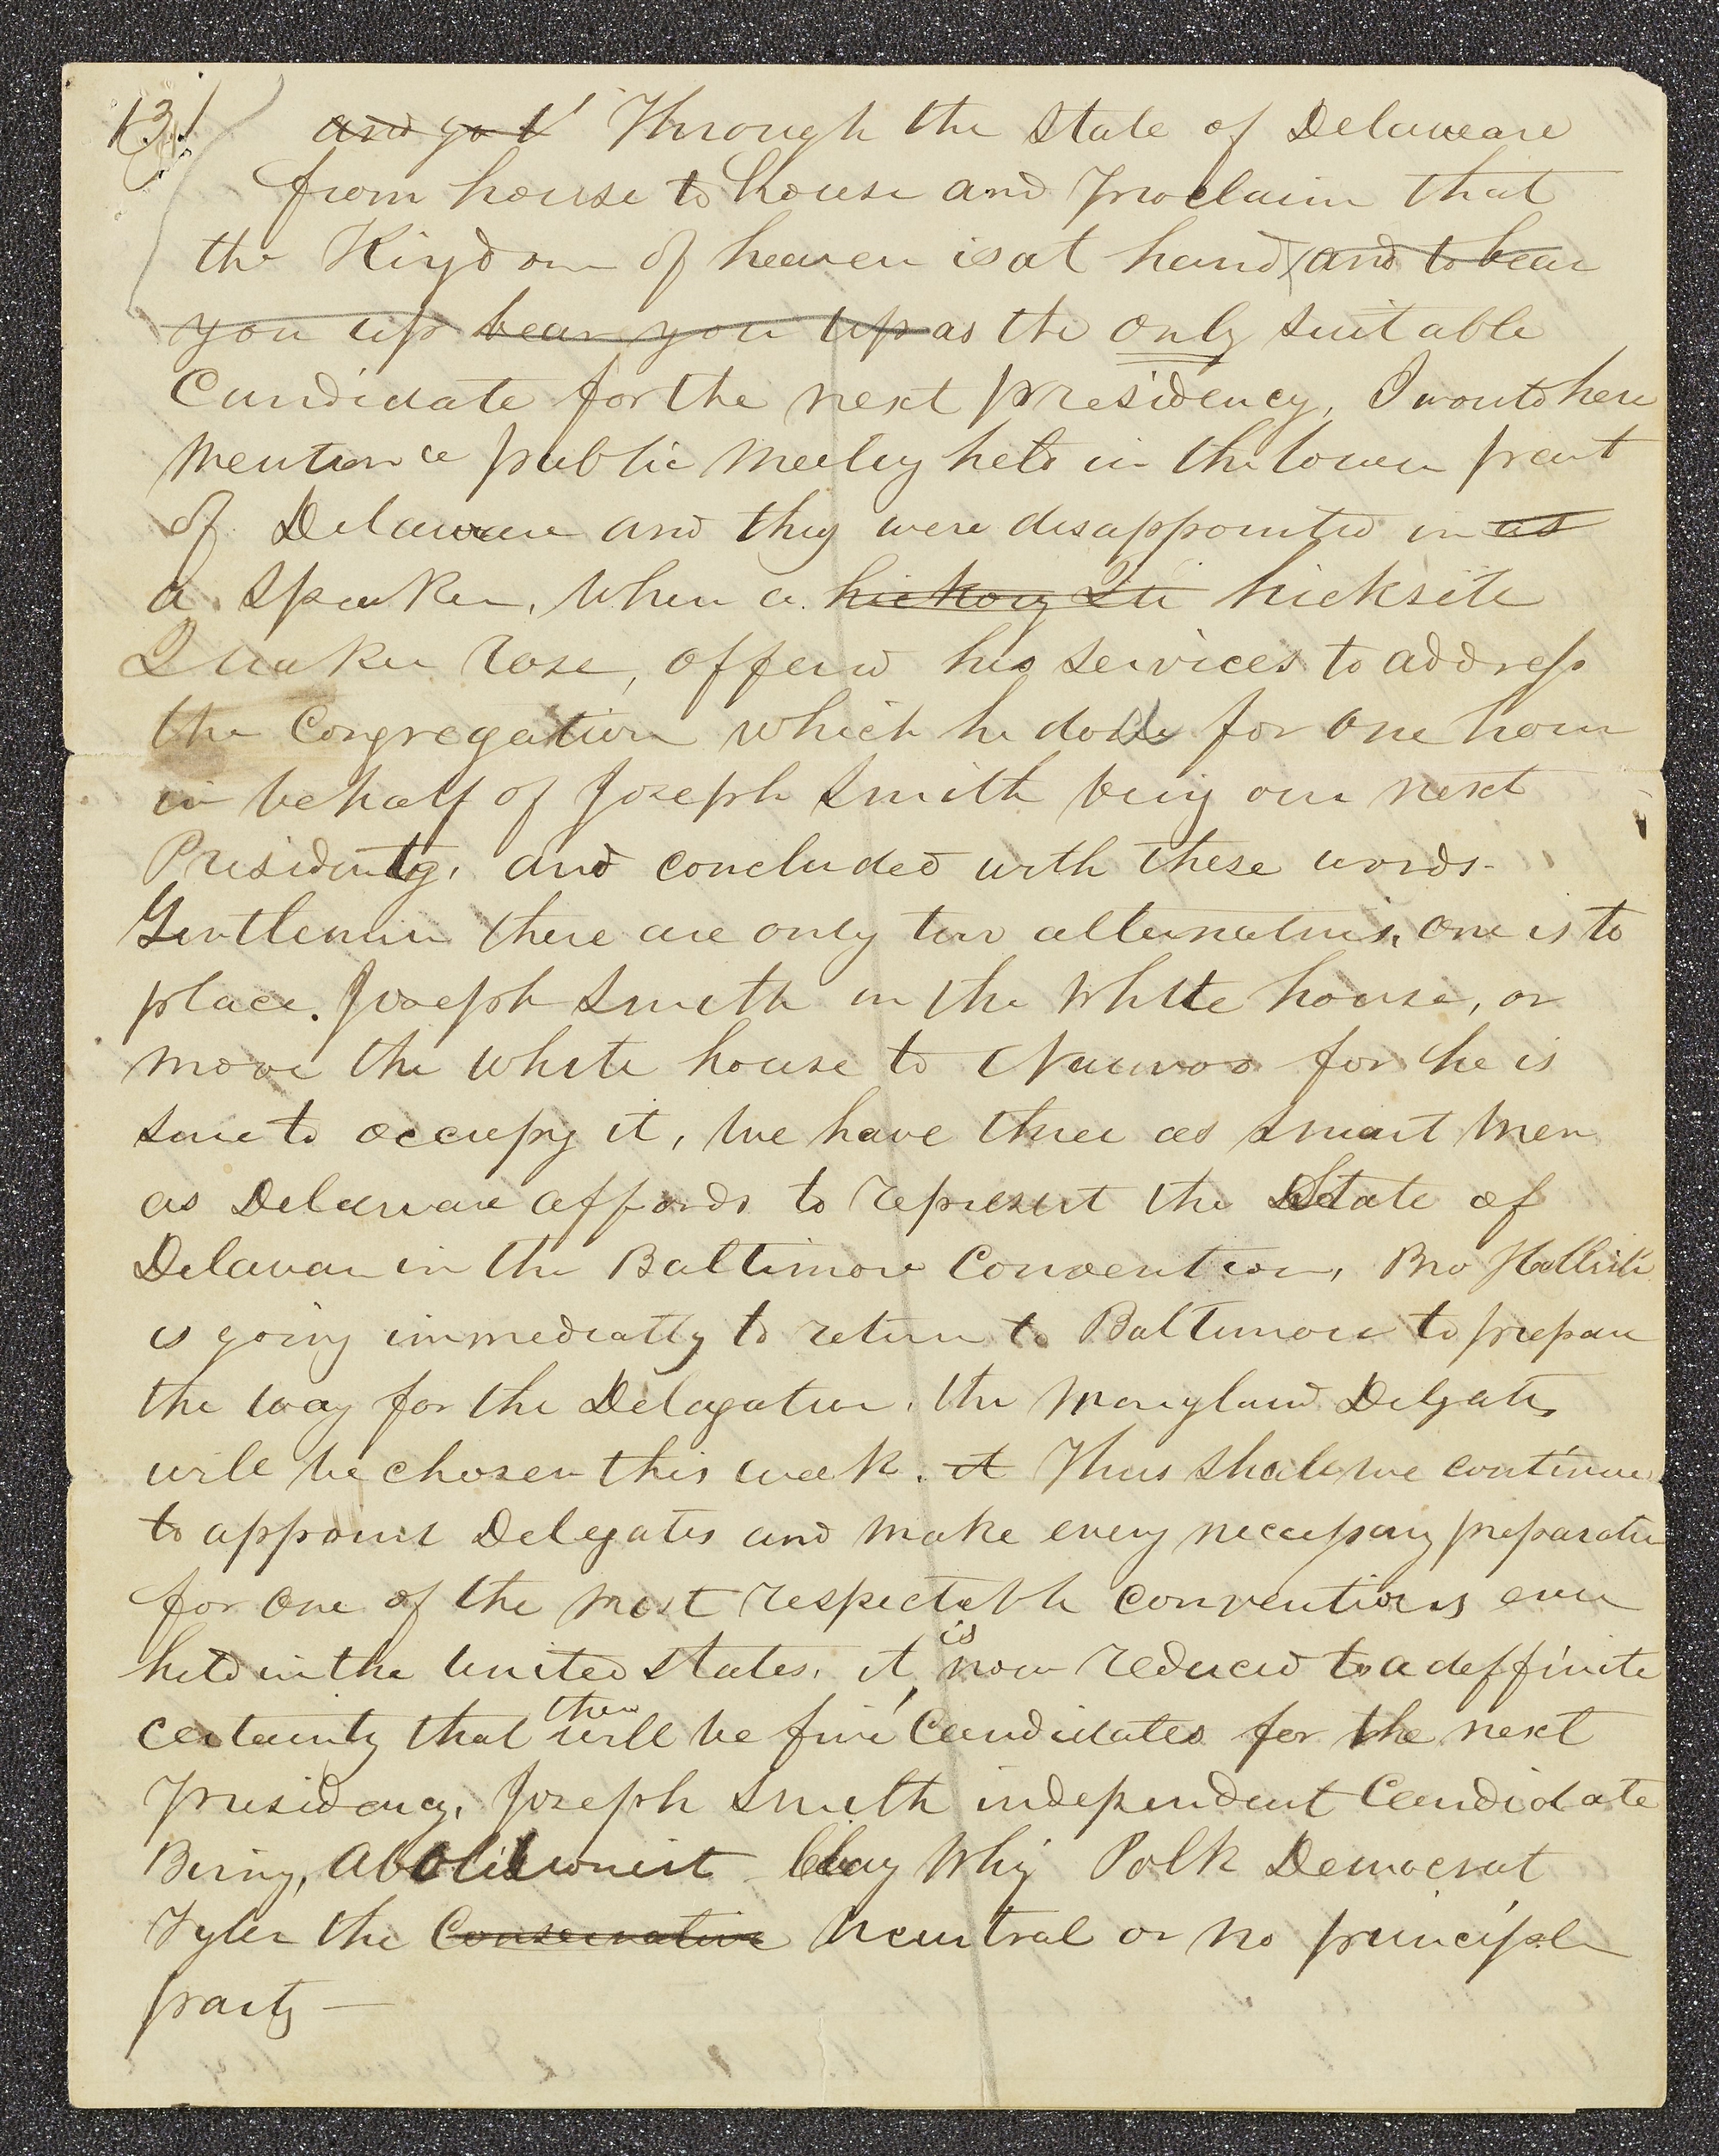 13
and go t Through the State of Delaweare
from house to house and proclaim that
the Kingdom of heaven is at hand and to bear
you up bear you up as the only suitable
Candidate for the next presidency, I would here
mention a public meeting held in the lower part
of Delaware and they were disappointed in as
a Speaker, When a hickory Qu hicksite
Quaker rose, offered his services to address
the Congregation which he done for one hour
in behalf of Joseph Smith being our next
President, and concluded with these words-
Gentlemen there are only two alternatives, one is to
place Joseph Smith in the White house, or
move the white house to Nauvoo for he is
sure to occupy it, We have three as smart men
as Delaware affords to represent the State of
Delaware in the Baltimore Convention, Bro Hollist
is going immediatly to return to Baltimore to prepare
the way for the Delagation, the Maryland Delgates
will be chosen this week. it Thus shall we continue
to appoint Delegates and make every necessary preparation
for one of the most respectable conventions ever
held in the United States, it is now reduced to a deffinite
certainty that there will be five Candidates for the next
presidency, Joseph Smith independent Candidate
Birny, Abolitionist Clay Whig Polk Democrat
Tyler the Conservative Neutral or no principle
party —